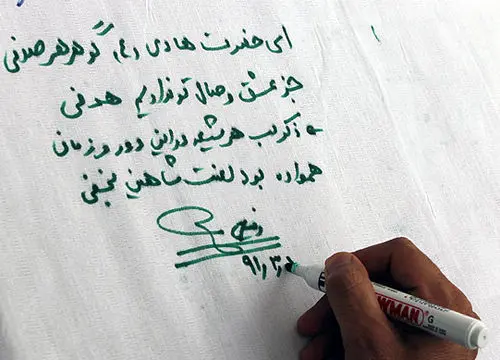 ای حضرت هادی (ع) گوهر هر صدفی
جز عشق وصال تو نداریم هدفی
ذکر لب هر شیعه در این دور و زمان
همواره بود لعنت شاهین نجفی
۹۱
WMAN
G